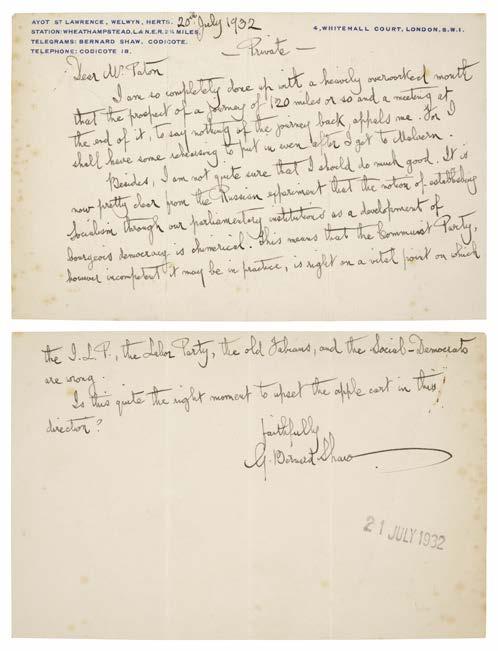 AYOT ST LAWRENCE, WELWYN, HERTS. 20th July 1932
STATION: WHEATHAMPSTEAD, L. & N.E.R. 2¼ MILES.
TELEGRAMS: BERNARD SHAW, CODICOTE.
TELEPHONE: CODICOTE 18.
4, WHITEHALL COURT, LONDON, S.W.1.
— Private —
Dear Mr Paton
I am so completely done up with a heavily overworked month
that the prospect of a journey of 120 miles or so and a meeting at
the end of it, to say nothing of the journey back, appals me. For I
shall have some rehearsing to put in even after I get to Malvern.
Besides, I am not quite sure that I should do much good. It is
now pretty clear from the Russian experiment that the notion of establishing
Socialism through our parliamentary institutions as a development of
bourgeois democracy is chimerical. This means that the Communist Party,
however incompetent it may be in practice, is right on a vital point on which
the I.L.P., the Labor Party, the old Fabians, and the Social-Democrats
are wrong.
Is this quite the right moment to upset the apple cart in this
direction?
faithfully
G. Bernard Shaw
21 JULY 1932